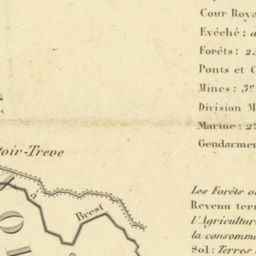 Cour Roya
Evêché: a
Forêts: 2.
Ponts et C
Mines: 3e
Division M
Marine: 2
Gendarmer
oir-Treve
Brest
Les Forêts o
Revenu terr
l'Agriculture
la consomm
Sol: Terres